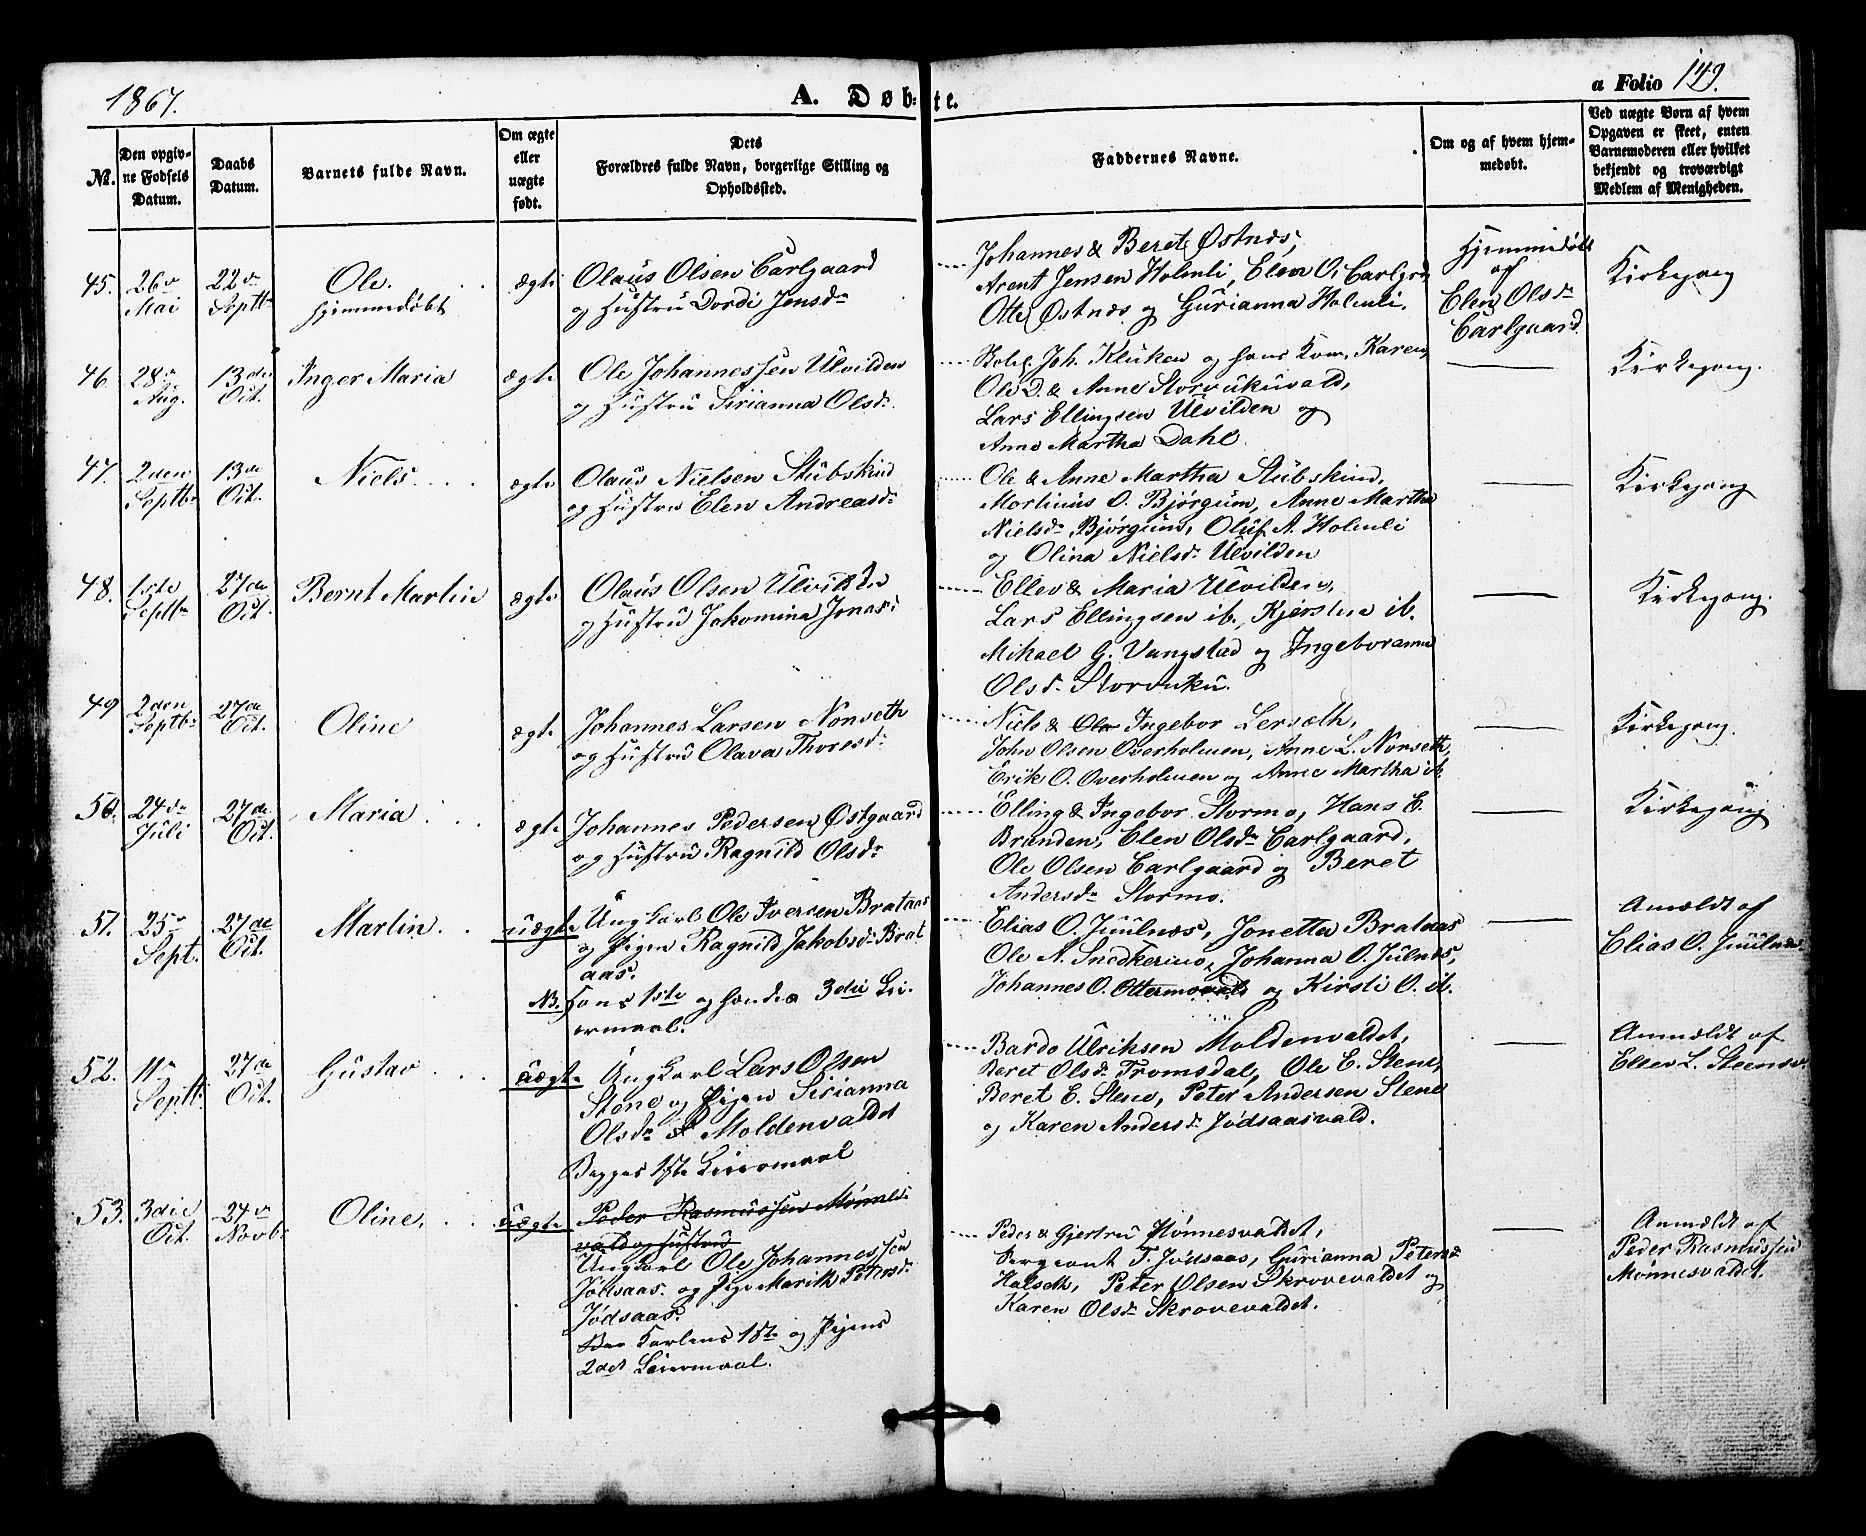 1867.
A. Døbte.
a Folio 149.
№.
Den opgivne Fødsels Datum.
Daabs Datum.
Barnets fulde Navn.
Om ægte eller uægte født.
Dets Forældres fulde Navn, borgerlige Stilling og Opholdssted.
Faddernes Navne.
Om og af hvem hjemmedøbt.
Ved uægte Børn af hvem Opgaven er skeet, enten Barnemoderen eller hvilket bekjendt og troværdigt Medlem af Menigheden.
45. 26de Mai 22de Septbr
Ole.
hjemmedøbt
ægte
Olaus Olsen Carlgaard
og Hustru Dordi Jensdr
Johannes & Beret Østnæs,
Arent Jensen Holmli, Elen O. Carlgrd,
Otte Østnæs og Gurianna Holmli.
Hjemmedøbt
af
Elen Olsdr
Carlgaard
Kirkegang
46. 28de Aug. 13de Oct.
Inger Maria
ægte
Ole Johannessen Ulvilden
og Hustru Sirianna Olsdr.
Joh. Kluken og hans Kone Karen,
Ole D. & Anne Storvukuvald,
Lars Ellingsen Ulvilden og
Anne Martha Dahl.
Kirkegang.
47. 2den Septbr 13de Oct.
Niels
ægte
Olaus Nielsen Stubskind
og Hustru Elen Andreasdr
Ole & Anne Martha Stubskind,
Martinus O. Bjørgum, Anne Martha
Nielsdr Bjørgum, Oluf A. Holmli
og Olina Nielsdr Ulvilden
Kirkegang
48. 1ste Septbr 27de Oct.
Bernt Martin
ægte
Olaus Olsen Ulvilden
og Hustru Jakomina Jonasd
Ellev & Maria Ulvilden,
Lars Ellingsen ib., Kjerstine ib.
Mikael G. Vangstad og Ingeboranna
Olsd. Storvuku.
Kirkegang.
49 2den Septbr 27de Oct.
Oline
ægte
Johannes Larsen Nonseth
og Hustru Olava Thoresdr
Niels & Ole Ingebor Lerseth,
John Olsen Overholmen, Anne L. Nonseth,
Erik O. Overholmen og Anne Martha ib
Kirkegang.
50. 24de Juli 27de Oct.
Maria
ægte
Johannes Pedersen Østgaard
og Hustru Ragnild Olsdr
Elling & Ingebor Stormo, Hans E.
Branden, Elen Olsdr Carlgaard,
Ole Olsen Carlgaard og Beret
Andersdr Stormo.
Kirkegang
51. 25de Sept. 27de Oct.
Martin
uægte
Ungkarl Ole Iversen Brataas
og Pigen Ragnild Jakobsdr Brat
aas.
NB. Hans 1ste og hendes 3die Lei-
ermaal.
Elias O. Juulnæs, Jonetta Brataas
Ole N. Snedkermo, Johanna O. Julnes,
Johannes O. Ottermovald og Kirsti O. ib.
Anmældt af
Elias O. Juulnæs
52. 11te Septbr 27de Oct.
Gustav
uægte
Ungkarl Lars Olsen
Stene og Pigen Sirianna
Olsdr Moldenvaldet
Begges 1ste Leiermaal
Bardo Ulriksen Moldenvaldet,
Beret Olsd. Tromsdal, Ole E. Stene,
Beret E. Stene, Peter Andersen Stene
og Karen Andersd. Jødsaasvald.
Anmældt af
Ellev L. Steensv.
53. 3die Oct. 24de Novbr
Oline.
uægte
Peder Rasmussen Mønnes
vald og Hustru
Ungkarl Ole Johannessen
Jødsaas. og Pige Marith Petersdr
Jødsaas.
Karlens 1ste og Pigens
2det Leiermaal.
Peder & Gjertru Mønnesvaldet,
Sergeant T. Jødsaas, Gurianna Petersdr
Halseth, Peter Olsen Skrovevaldet og
Karen Olsdr Skrovevaldet.
Anmældt af
Peder Rasmussen
Mønnesvaldet.